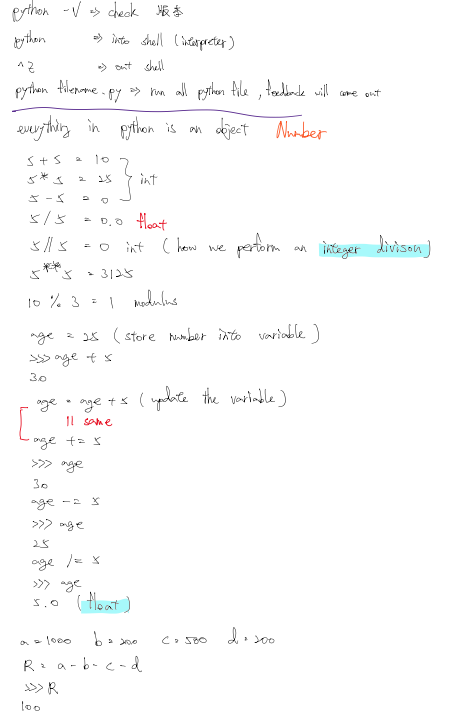 python -V => check 版本
python => into shell (interpreter)
^Z => out shell
python filename.py => run all python file, feedback will come out
everything in python is an object Number
5 + 5 = 10
5 * 5 = 25 int
5 - 5 = 0
5 / 5 = 0.0 float
5 // 5 = 0 int (how we perform an integer divison)
5 ** 5 = 3125
10 % 3 = 1 modulus
age = 25 (store number into variable)
>>> age + 5
30
age = age + 5 (update the variable)
|| same
age += 5
>>> age
30
age -= 5
>>> age
25
age /= 5
>>> age
5.0 (float)
a = 1000 b = 200 c = 500 d = 200
R = a - b - c - d
>>> R
100